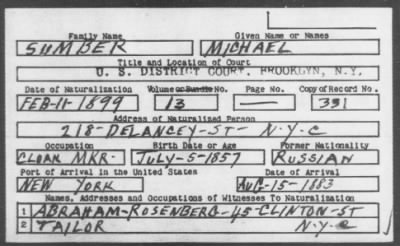 Family Name Given Name or Names
SUMBER MICHAEL
Title and Location of Court
U. S. DISTRICT COURT. BROOKLYN, N.Y.
Date of Naturalization Volume or Bundle No. Page No. Copy of Record No.
FEB-11-1899 13 — 331
Address of Naturalized Person
218-DELANCEY-ST- N-Y-C
Occupation Birth Date or Age Former Nationality
CLOAK MKR- JULY-5-1857 RUSSIAN
Port of Arrival in the United States Date of Arrival
NEW YORK AUG-15-1883
Names, Addresses and Occupations of Witnesses To Naturalization
1 ABRAHAM-ROSENBERG-45-CLINTON-ST
2 TAILOR N-Y-C